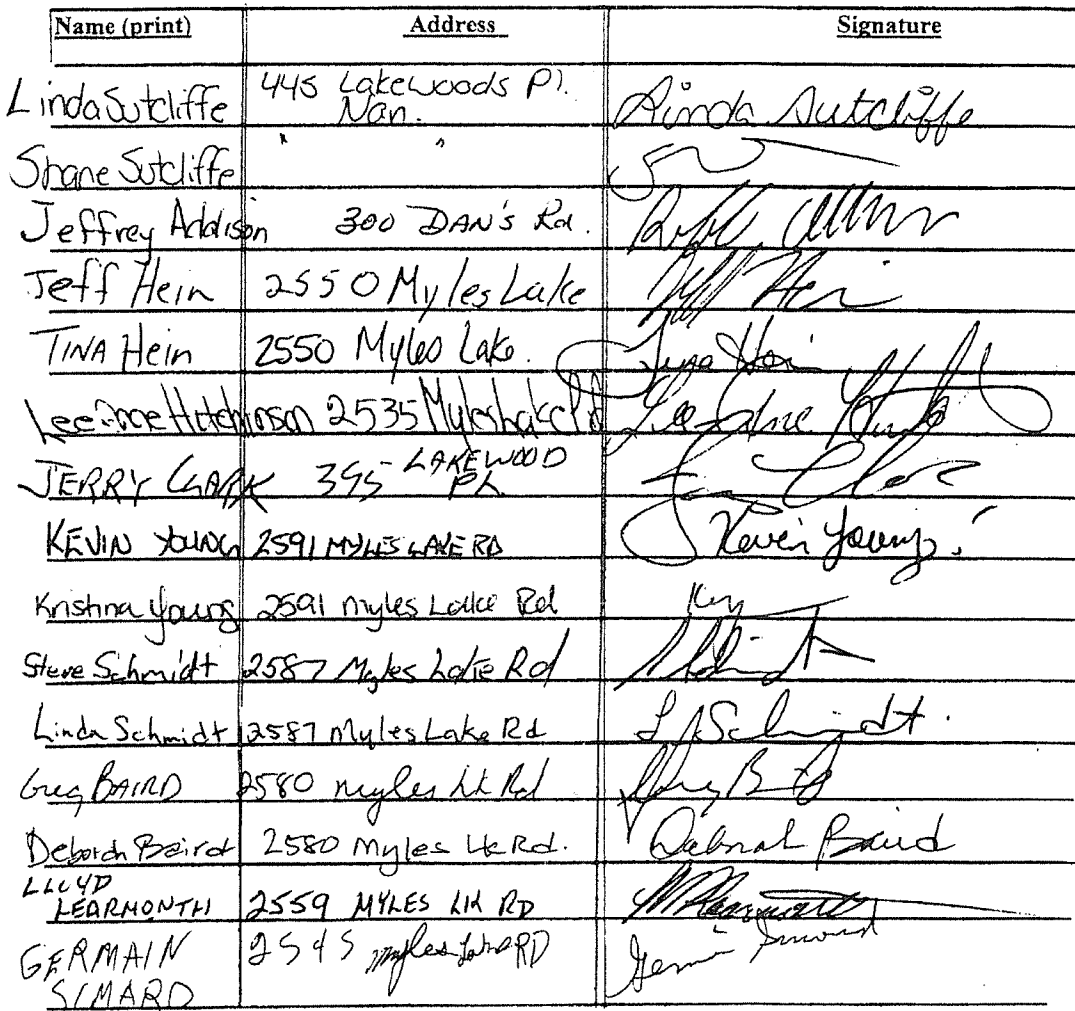 Name (print) Address Signature
Linda Sutcliffe 445 Lakewoods Pl. Nan. Linda Sutcliffe
Shane Sutcliffe " "
Jeffrey Addison 300 DAN'S Rd.
Jeff Hein 2550 Myles Lake Jeff Hein
TINA Hein 2550 Myles Lake. Tina Hein
Lee-Anne Hutchinson 2535 Myles Lake Rd Lee-Anne
JERRY CLARK 395 LAKEWOOD PL. Clark
KEVIN YOUNG 2591 MYLES LAKE RD Kevin Young
Kristina Young 2591 Myles Lake Rd
Steve Schmidt 2587 Myles Lake Rd
Linda Schmidt 2587 Myles Lake Rd L Schmidt
Greg BAIRD 2580 myles Lk Rd
Deborah Baird 2580 Myles Lk Rd. Deborah Baird
LLOYD LEARMONTH 2559 MYLES LK RD
GERMAIN SIMARD 2545 Myles Lake RD Germain Simard